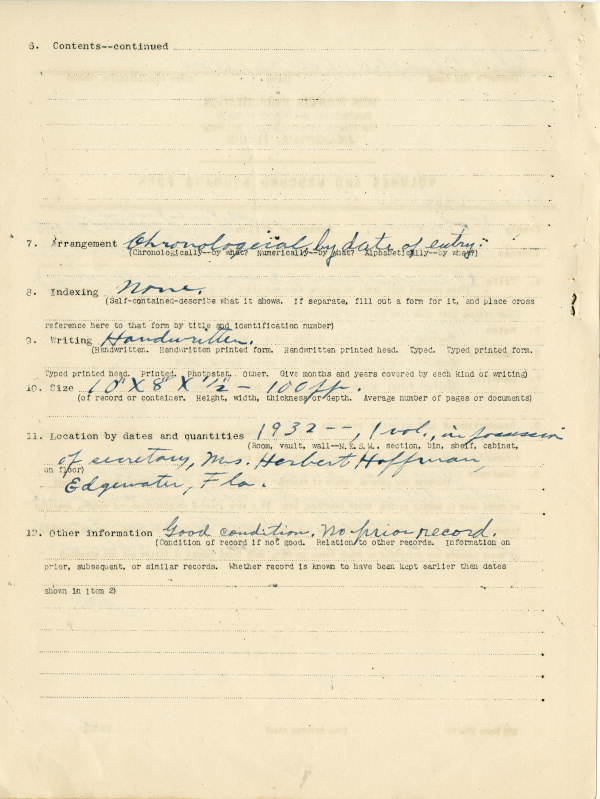 6. Contents--continued
7. Arrangement Chronological, by date of entry.
(Chronologically--by what? Numerically--by what? Alphabetically--by what?)
8. Indexing None.
(Self-contained-describe what it shows. If separate, fill out a form for it, and place cross
reference here to that form by title and identification number)
9. Writing Handwritten.
(Handwritten. Handwritten printed form. Handwritten printed head. Typed. Typed printed form.
Typed printed head. Printed. Photostat. Other. Give months and years covered by each kind of writing)
10. Size 10" X 8" X 1/2" - 100 pp.
(of record or container. Height, width, thickness or depth. Average number of pages or documents)
11. Location by dates and quantities 1932 --, 1 vol., in possession
(Room, vault, wall--N.E.S.W., section, bin, shelf, cabinet,
of secretary, Mrs. Herbert Hoffman,
on floor)
Edgewater, Fla.
12. Other information Good condition. No prior record.
(Condition of record if not good. Relation to other records. Information on
prior, subsequent, or similar records. Whether record is known to have been kept earlier then dates
shown in item 2)